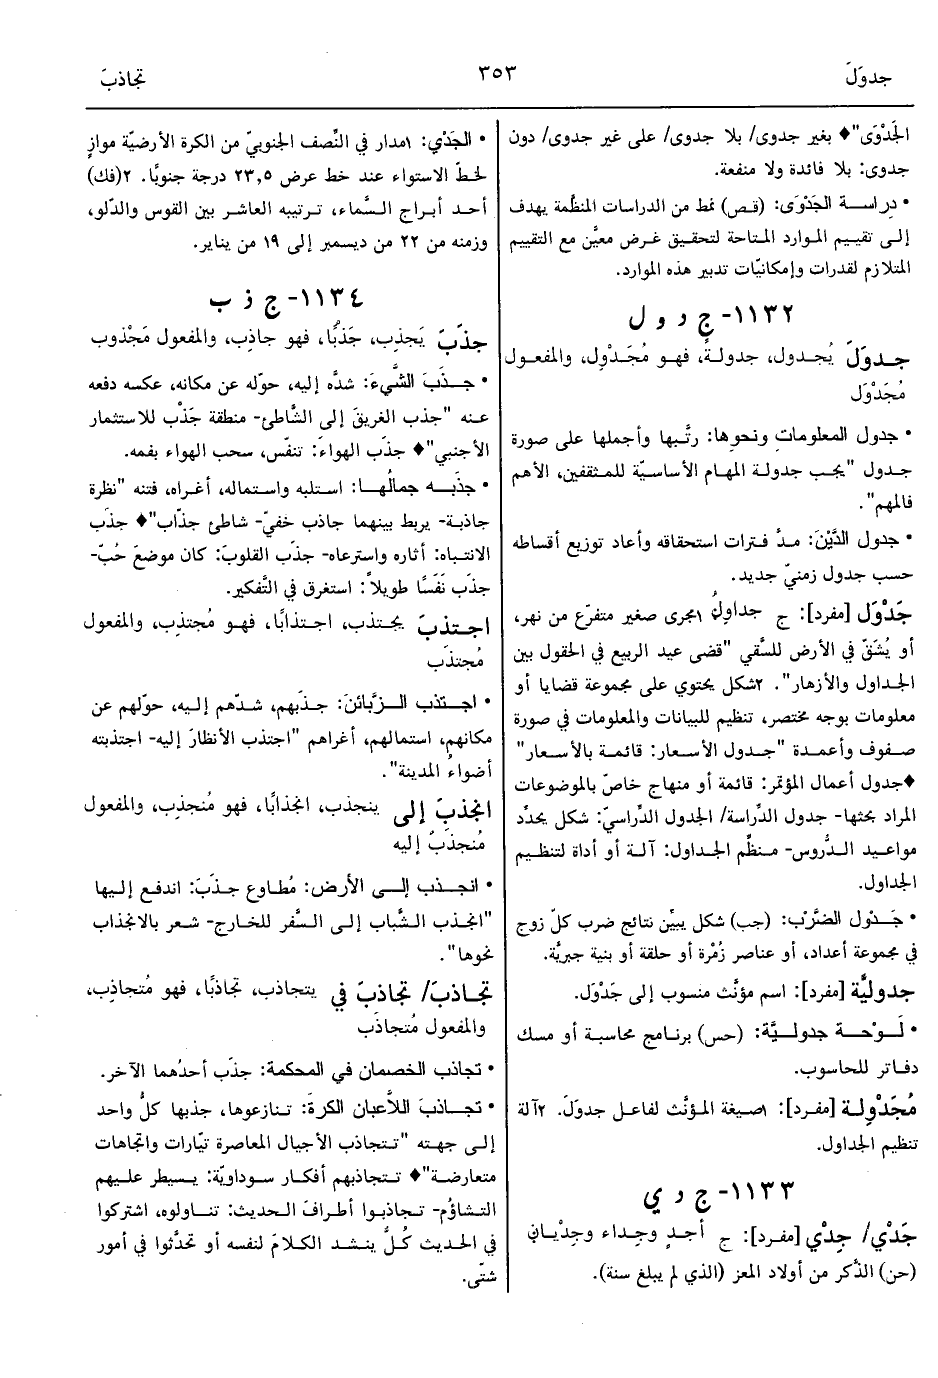 جدوَلَ
٣٥٣
تجاذبَ
الجَدْوَى"♦ بغير جدوى/ بلا جدوى/ على غير جدوى/ دون
جدوى: بلا فائدة ولا منفعة.
• دراسة الجَدْوَى: (قص) نمط من الدراسات المنظَّمة يهدف
إلى تقييم الموارد المتاحة لتحقيق غرض معيَّن مع التقييم
المتلازم لقدرات وإمكانيّات تدبير هذه الموارد.
١١٣٢- ج د و ل
جدولَ يُجدول، جدولةً، فهو مُجَدْوِل، والمفعول
مُجَدْوَل
• جدول المعلومات ونحوها: رتَّبها وأجملها على صورة
جدول "يجب جدولة المهام الأساسيّة للمثقفين، الأهم
فالمهم".
• جدول الدَّيْنَ: مدَّ فترات استحقاقه وأعاد توزيع أقساطه
حسب جدول زمنيّ جديد.
جَدْوَل [مفرد]: ج جداولُ ١مجرى صغير متفرّع من نهر،
أو يُشَقّ في الأرض للسَّقي "قضى عيد الربيع في الحقول بين
الجداول والأزهار". ٢شكل يحتوي على مجموعة قضايا أو
معلومات بوجه مختصر، تنظيم للبيانات والمعلومات في صورة
صفوف وأعمدة "جدول الأسعار: قائمة بالأسعار"
♦جدول أعمال المؤتمر: قائمة أو منهاج خاصّ بالموضوعات
المراد بحثها- جدول الدِّراسة/ الجدول الدِّراسيّ: شكل يحدِّد
مواعيد الدُّروس- منظِّم الجداول: آلة أو أداة لتنظيم
الجداول.
• جَدْول الضَّرْب: (جب) شكل يبيِّن نتائج ضرب كلّ زوج
في مجموعة أعداد، أو عناصر زُمْرة أو حلقة أو بنية جبريَّة.
جدوليَّة [مفرد]: اسم مؤنَّث منسوب إلى جَدْوَل.
• لَوْحة جدوليَّة: (حس) برنامج محاسبة أو مسك
دفاتر للحاسوب.
مُجَدْوِلة [مفرد]: ١صيغة المؤنَّث لفاعل جدولَ. ٢آلة
تنظيم الجداول.
١١٣٣- ج د ي
جَدْي/ جِدْي [مفرد]: ج أجدٍ وجِداء وجِدْيان
(حن) الذَّكر من أولاد المعز (الذي لم يبلغ سنة).
• الجَدْي: ١مدار في النِّصف الجنوبيّ من الكرة الأرضيّة موازٍ
لخطّ الاستواء عند خط عرض ٢٣,٥ درجة جنوبًا. ٢(فك)
أحد أبراج السَّماء، ترتيبه العاشر بين القوس والدَّلو،
وزمنه من ٢٢ من ديسمبر إلى ١٩ من يناير.
١١٣٤- ج ذ ب
جذَبَ يَجذِب، جَذْبًا، فهو جاذِب، والمفعول مَجْذوب
• جذَبَ الشَّيءَ: شدَّه إليه، حوّله عن مكانه، عكسه دفعه
عنه "جذب الغريقَ إلى الشَّاطئ- منطقة جَذْب للاستثمار
الأجنبي"♦ جذَب الهواءَ: تنفّس، سحب الهواء بفمه.
• جذَبه جمالُها: استلبه واستماله، أغراه، فتنه "نظرة
جاذبة- يربط بينهما جاذب خفيّ- شاطئ جذّاب"♦ جذَب
الانتباهَ: أثاره واسترعاه- جذَب القلوبَ: كان موضعَ حُبّ-
جذَب نَفَسًا طويلاً: استغرق في التَّفكير.
اجتذبَ يجتذب، اجتذابًا، فهو مُجتذِب، والمفعول
مُجتذَب
• اجتذب الزَّبائنَ: جذبهم، شدّهم إليه، حوّلهم عن
مكانهم، استمالهم، أغراهم "اجتذب الأنظارَ إليه- اجتذبته
أضواءُ المدينة".
انجذبَ إلى ينجذب، انجذابًا، فهو مُنجذِب، والمفعول
مُنجذَبٌ إليه
• انجذب إلى الأرض: مُطاوع جذَبَ: اندفع إليها
"انجذب الشَّباب إلى السَّفر للخارج- شعر بالانجذاب
نحوها".
تجاذبَ/ تجاذبَ في يتجاذب، تجاذبًا، فهو مُتجاذِب،
والمفعول مُتجاذَب
• تجاذب الخصمان في المحكمة: جذَب أحدُهما الآخر.
• تجاذبَ اللاَّعبان الكرةَ: تنازعوها، جذبها كلُّ واحد
إلى جهته "تتجاذب الأجيال المعاصرة تيّارات واتجاهات
متعارضة"♦ تتجاذبهم أفكار سوداويّة: يسيطر عليهم
التشاؤم- تجاذبوا أطرافَ الحديث: تناولوه، اشتركوا
في الحديث كُلٌّ ينشد الكلامَ لنفسه أو تحدَّثوا في أمور
شتّى.